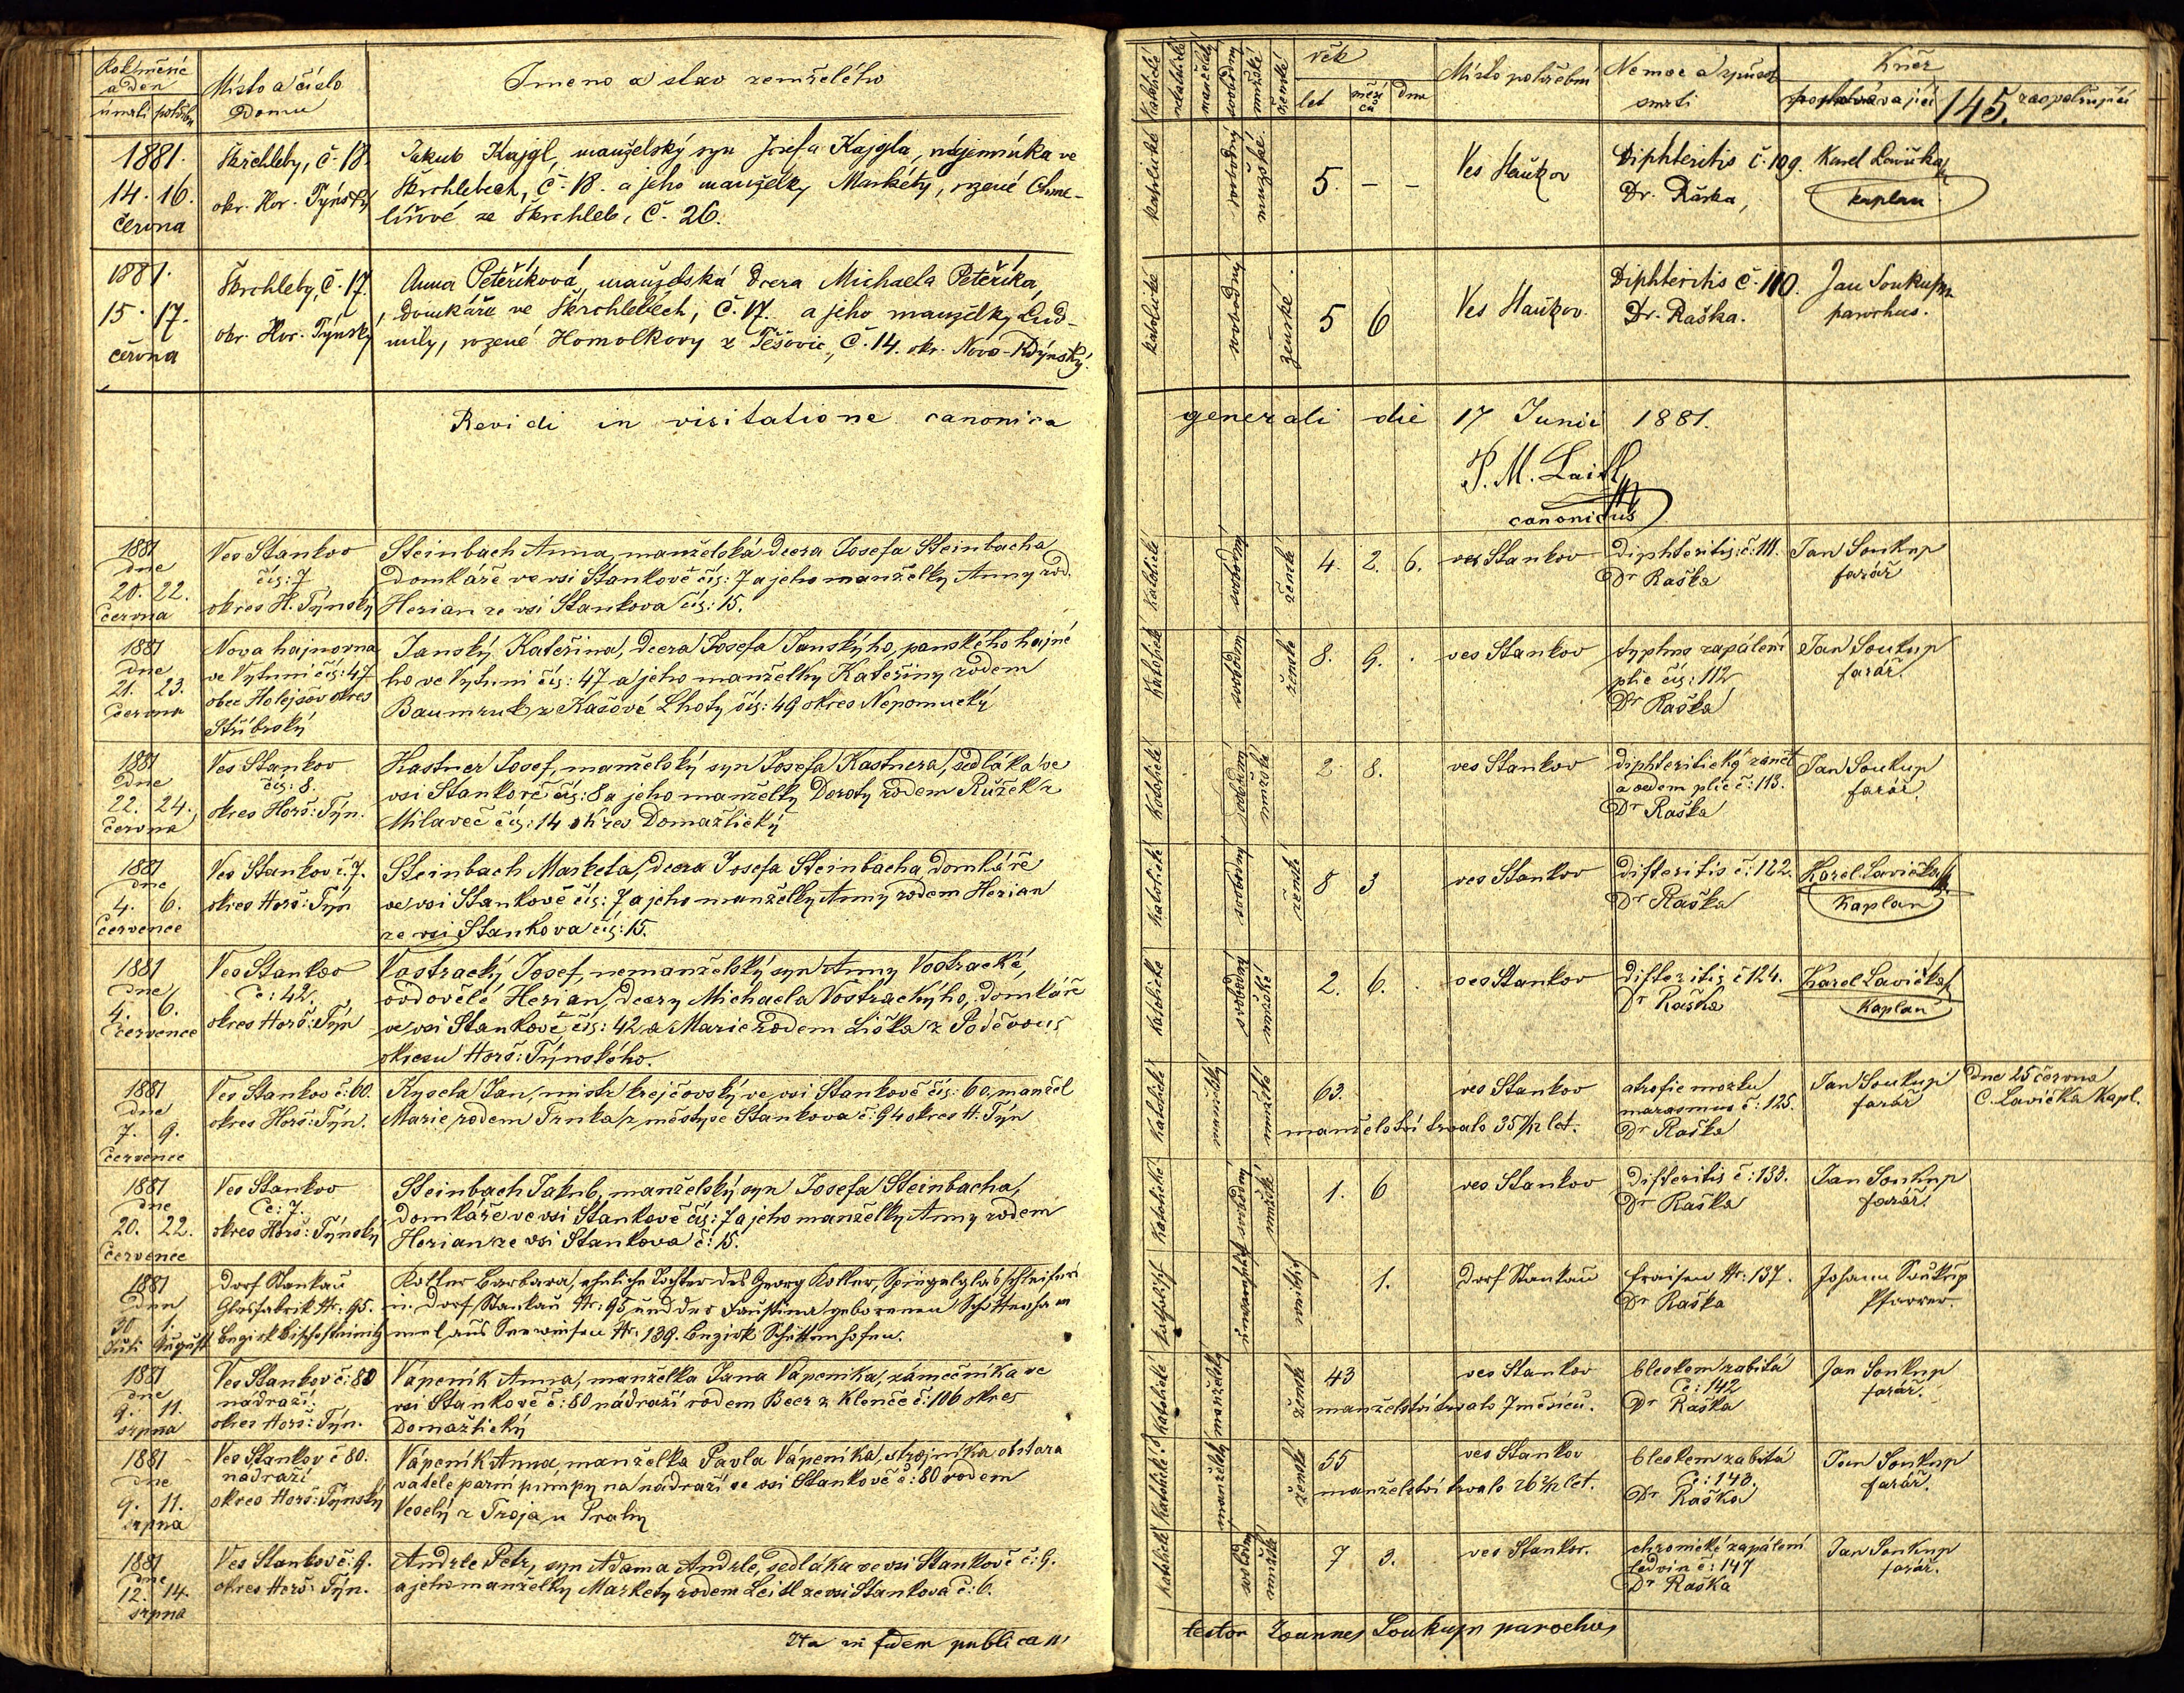 Rok měsíc
a den
úmrtí pohřbu
Místo a číslo
Domu
Jmeno a stav zemřelého
1881.
14. 16.
června
Škrchleby, č. 18.
okr. Hor. Týnský
Jakub Kajgl, manželský syn Josefa Kajgla, nájemníka ve
Škrchlebech, č. 18. a jeho manželky Markéty, rozené Chme-
lířové ze Škrchleb, č. 26.
1881.
15. 17.
června
Škrchleby, č. 17.
okr. Hor. Týnský
Anna Peteříková, manželská dcera Michaela Peteříka,
domkáře ve Škrchlebech, č. 17. a jeho manželky Lud-
mily, rozené Homolkovy z Těšovic, č. 14. okr. Novo-Kdýnský.
Revidi in visitatione canonica
1881
dne
20. 22.
června
Ves Stankov
čís: 7
okres H. Týnský
Steinbach Anna, manželská dcera Josefa Steinbacha
domkáře ve vsi Stankově čís: 7 a jeho manželky Anny rod.
Herian ze vsi Stankova čís: 15.
1881
dne
21. 23.
června
Nova hajnovna
ve Vytuni čís: 47
obec Holejšov okres
Stříbrský
Janský Kateřina, dcera Josefa Janskýho, panského hajné
ho ve Vytuni čís: 47 a jeho manželky Kateřiny rodem
Baumruk z Kašové Lhoty čís: 49 okres Nepomucký
1881
dne
22. 24.
června
Ves Stankov
čís: 8.
okres Horš: Týn.
Kastner Josef, manželský syn Josefa Kastnera, sedláka ve
vsi Stankově čís: 8 a jeho manželky Doroty rodem Růžek z
Milaveč čís: 14 okres Domažlický
1881
dne
4. 6.
července
Ves Stankov č. 7.
okres Horš: Týn
Steinbach Marketa, dcera Josefa Steinbacha domkáře
ve vsi Stankově čís: 7 a jeho manželky Anny rodem Herian
ze vsi Stankova čís: 15.
1881
dne
4. 6.
července
Ves Stankov
Čc: 42.
okres Horš: Týn
Vostracký Josef, nemanželský syn Anny Vostracké,
ovdovělé Herian, dcery Michaela Vostrackýho, domkáře
ve vsi Stankově čís: 42 a Marie rodem Liška z Poděvous
okresu Horš: Týnského.
1881
dne
7. 9.
července
Ves Stankov č: 60.
okres Horš: Týn.
Kyseta Jan, mistr krejčovský ve vsi Stankově čís: 60, manžel
Marie, rodem Trnka, z městyse Stankova č: 94 okres H. Týn
1881
dne
20. 22.
července
Ves Stankov
Čc: 7.
okres Horš: Týnský
Steinbach Jakub, manželský syn Josefa Steinbacha,
domkáře ve vsi Stankově čís: 7 a jeho manželky Anny rodem
Herian ze vsi Stankova č: 15.
1881
den
30. 1.
Juli August
Dorf Stankau
Glasfabrik Nr: 95.
Bezirk Bischofteinitz
Koller Barbara, eheliche Tochter des Georg Koller, Spiegelglasschleifers
in Dorf Stankau Nr: 95 und der Faustina geborenen Schottenha m
mel, aus Seewiesen Nr: 139. Bezirk Schüttenhofen.
1881
dne
9. 11.
srpna
Ves Stankov č: 80
nádraží
okres Horš: Týn.
Vápeník Anna, manželka Jana Vápeníka, zámečníka ve
vsi Stankově č: 80 nádraží rodem Beer z Klenče č: 106 okres
Domažlický
1881
dne
9. 11.
srpna
Ves Stankov č 80.
nádraží
okres Horš: Týnský
Vápeník Anna, manželka Pavla Vápeníka, strojníka obstara
vatele parní pumpy na nádraží ve vsi Stankově č: 80 rodem
Veselý z Troja u Prahy
1881
dne
12. 14.
srpna
Ves Stankov č: 9.
okres Horš: Týn.
Andrle Petr, syn Adama Andrle, sedláka ve vsi Stankově č: 9.
a jeho manželky Markety rodem Leitl ze vsi Stankova č: 6.
Ita in fidem publicam
Katolické
manželský
svobodný
mužské
ženské
věk
let měsíců dnu
Místo pohřební
Nemoc a způsob
smrti
Kněz
pochovávající
145.
zaopatřující
katolické svobodný mužské
5. – –
Ves Staňkov
Diphteritis č. 109.
Dr. Raška,
Karel Lavička
kaplan
katolické svobodný ženské
5 6
Ves Staňkov.
Diphteritis č. 110.
Dr. Raška.
Jan Soukup
parochus.
generali die 17 Junii 1881.
P. M. Laitl
canonicus
katolické svobodný ženské
4. 2. 6.
ves Stankov
Diphteritis: č: 111.
Dr Raška
Jan Soukup
farář
katolické svobodný ženské
8. 9. .
ves Stankov
typhus zapálení
plic čís: 112
Dr Raška
Jan Soukup
farář.
katolické svobodný mužské
2. 8.
ves Stankov
diphteritický zánět
a oedem plic č: 113.
Dr Raška
Jan Soukup
farář.
katolické svobodný ženské
8 3
ves Stankov
difteritis č: 122.
Dr Raška
Karel Lavička
Kaplan
katolické svobodný mužské
2. 6. .
ves Stankov
difteritis č 124.
Dr Raška
Karel Lavička
Kaplan
katolické manželský mužské
63.
ves Stankov
manželství trvalo 35 7/12 let.
atrofie mozku
marasmus č: 125.
Dr Raška
Jan Soukup
farář
Dne 25 června
C. Lavička Kapl.
katolické svobodný mužské
1. 6
ves Stankov
difteritis č: 133.
Dr Raška
Jan Soukup
farář.
katholisch unverehlicht weiblich
1.
Dorf Stankau
Fraisen Nr: 137.
Dr Raška
Johann Soukup
Pfarrer.
katolické manželský ženské
43
ves Stankov
manželství trvalo 7 měsíců.
bleskem zabitá
Čc: 142
Dr Raška
Jan Soukup
farář.
katolické manželský ženské
55
ves Stankov
manželství trvalo 26 2/12 let.
bleskem zabitá
Čc: 143.
Dr Raška
Jan Soukup
farář.
katolické svobodný mužské
7 3.
ves Stankov.
chronické zapálení
ledvin č: 147
Dr Raška
Jan Soukup
farář.
testor Joannes Soukup parochus